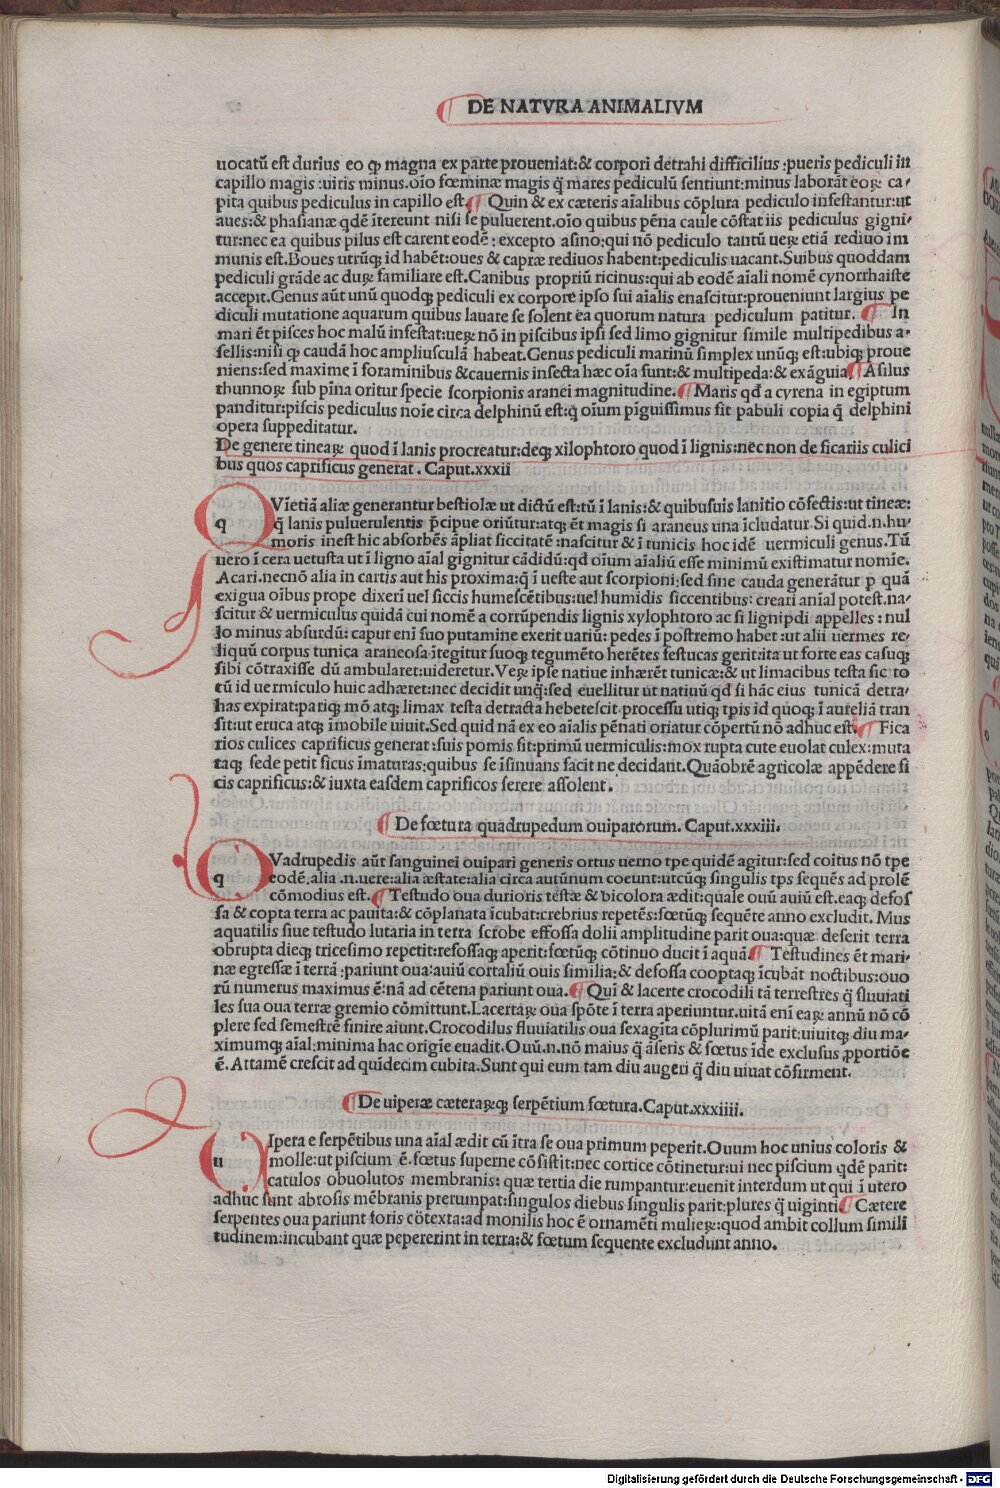 DE NATVRA ANIMALIVM
uocatũ est durius eo ꝙ magna ex parte proueniat:& corpori detrahi difficilius :pueris pediculi in
capillo magis :uiris minus.oĩo fœminæ magis q̃ mares pediculũ sentiunt:minus laborãt eoꝝ ca-
pita quibus pediculus in capillo est. Quin & ex cæteris aĩalibus cõplura pediculo infestantur:ut
aues:& phasianæ qdẽ ĩtereunt nisi se puluerent.oĩo quibus pẽna caule cõstat iis pediculus gigni-
tur:nec ea quibus pilus est carent eodẽ : excepto asino:qui nõ pediculo tantũ ueꝝ etiã rediuo im
munis est.Boues utrũꝗ id habẽt:oues & capræ rediuos habent:pediculis uacant.Suibus quoddam
pediculi grãde ac duꝝ familiare est.Canibus propriũ ricinus:qui ab eodẽ aĩali nomẽ cynorrhaiste
accepit.Genus aũt unũ quodꝗ pediculi ex corpore ipso sui aĩalis enascitur:proueniunt largius pe
diculi mutatione aquarum quibus lauare se solent ea quorum natura pediculum patitur. In
mari ẽt pisces hoc malũ infestat:ueꝝ nõ in piscibus ipsi sed limo gignitur simile multipedibus a-
sellis:nisi ꝙ caudã hoc ampliusculã habeat.Genus pediculi marinũ simplex unũꝗ est:ubiꝗ proue
niens:sed maxime ĩ foraminibus & cauernis insecta hæc oĩa sunt:& multipeda:& exãguia. Asilus
thunnoꝝ sub pĩna oritur specie scorpionis aranei magnitudine. Maris qd a cyrena in egiptum
panditur:piscis pediculus noĩe circa delphinũ est:q̃ oĩum pĩguissimus fit pabuli copia q̃ delphini
opera suppeditatur.
De genere tineaꝝ quod ĩ lanis procreatur:deꝗ xilophtoro quod ĩ lignis:nec non de ficariis culici
bus quos caprificus generat . Caput.xxxii
q Vĩetiã aliæ generantur bestiolæ ut dictũ est:tũ ĩ lanis:& quibusuis lanitio cõfectis:ut tineæ:
q̃ lanis puluerulentis p̃cipue oriũtur:atꝗ ẽt magis si araneus una ĩcludatur.Si quid.n.hu-
moris inest hic absorbẽs ãpliat siccitatẽ :nascitur & ĩ tunicis hoc idẽ uermiculi genus.Tũ
uero ĩ cera uetusta ut ĩ ligno aĩal gignitur cãdidũ:qd oĩum aĩaliũ esse minimũ existimatur nomĩe.
Acari.necnõ alia in cartis aut his proxima:q̃ ĩ ueste aut scorpioni:sed sine cauda generãtur p quã
exigua oĩbus prope dixeri uel siccis humescẽtibus:uel humidis siccentibus: creari anĩal potest.na-
scitur & uermiculus quidã cui nomẽ a corrũpendis lignis xylophtoro ac si lignipdi appelles : nul
lo minus absurdũ: caput enĩ suo putamine exerit uariũ: pedes ĩ postremo habet :ut alii uermes re-
liquũ corpus tunica araneosa ĩtegitur suoꝗ tegumẽto herẽtes festucas gerit:ita ut forte eas casuꝗ
sibi cõtraxisse dũ ambularet:uideretur.Veꝝ ipse natiue inhærẽt tunicæ:& ut limacibus testa sic to
tũ id uermiculo huic adhæret:nec decidit unq̃:sed euellitur ut natiuũ qd si hãc eius tunicã detra-
has expirat:pariꝗ mõ atꝗ limax testa detracta hebetescit.processu utiꝗ tpis id quoꝗ ĩ aureliã tran
sit:ut eruca atꝗ ĩmobile uiuit.Sed quid nã ex eo aĩalis pẽnati oriatur cõpertũ nõ adhuc est. Fica
rios culices caprificus generat :suis pomis fit:primũ uermiculis:mox rupta cute euolat culex:muta
taꝗ sede petit ficus ĩmaturas;quibus se ĩsinuans facit ne decidant.Quãobrẽ agricolæ appẽdere fi
cis caprificus:& iuxta easdem caprificos serere assolent .
De fœtura quadrupedum ouiparorum. Caput.xxxiii.
q Vadrupedis aũt sanguinei ouipari generis ortus uerno tpe quidẽ agitur:sed coitus nõ tpe
eodẽ.alia .n.uere:alia æstate:alia circa autũnum coeunt:utcũꝗ singulis tps sequẽs ad prolẽ
cõmodius est. Testudo oua durioris testæ & bicolora ædit:quale ouũ auiũ est.eaꝗ defos
sa & copta terra ac pauita:& cõplanata ĩcubat:crebrius repetẽs:fœtũꝗ sequẽte anno excludit. Mus
aquatilis siue testudo lutaria in terra scrobe effossa dolii amplitudine parit oua:quæ deserit terra
obrupta dieꝗ tricesimo repetit:refossaꝗ aperit:fœtũꝗ cõtinuo ducit ĩ aquã. Testudines ẽt mari-
næ egressæ ĩ terrã :pariunt oua:auiũ cortaliũ ouis similia:& defossa cooptaꝗ ĩcubãt noctibus:ouo
rũ numerus maximus ẽ:nã ad cẽtena pariunt oua. Quĩ & lacerte crocodili tã terrestres q̃ fluuiati
les sua oua terræ gremio cõmittunt.Lacertaꝝ oua spõte ĩ terra aperiuntur.uitã enĩ eaꝝ annũ nõ cõ
plere sed semestrẽ finire aiunt.Crocodilus fluuiatilis oua sexagĩta cõplurimũ parit:uiuitꝗ diu ma-
ximumꝗ aĩal:minima hac origĩe euadit.Ouũ.n.nõ maius q̃ ãseris & fœtus ĩde exclusus ꝓportiõe
ẽ. Attamẽ crescit ad quĩdecim cubita.Sunt qui eum tam diu augeri q̃ diu uiuat cõfirment.
De uiperæ cæteraꝝꝗ serpẽtium fœtura.Caput.xxxiiii.
u Ipera e serpẽtibus una aĩal ædit cũ ĩtra se oua primum peperit.Ouum hoc unius coloris &
molle:ut piscium ẽ. fœtus superne cõsistit:nec cortice cõtinetur:ui nec piscium qdẽ parit:
catulos obuolutos membranis: quæ tertia die rumpantur:euenit interdum ut qui ĩ utero
adhuc sunt abrosis mẽbranis prerumpat:singulos diebus singulis parit:plures q̃ uiginti. Cætere
serpentes oua pariunt foris cõtexta:ad monilis hoc ẽ ornamẽti mulieꝝ:quod ambit collum simili
tudinem:incubant quæ pepererint in terra:& fœtum sequente excludunt anno.
Digitalisierung gefördert durch die Deutsche Forschungsgemeinschaft - DFG